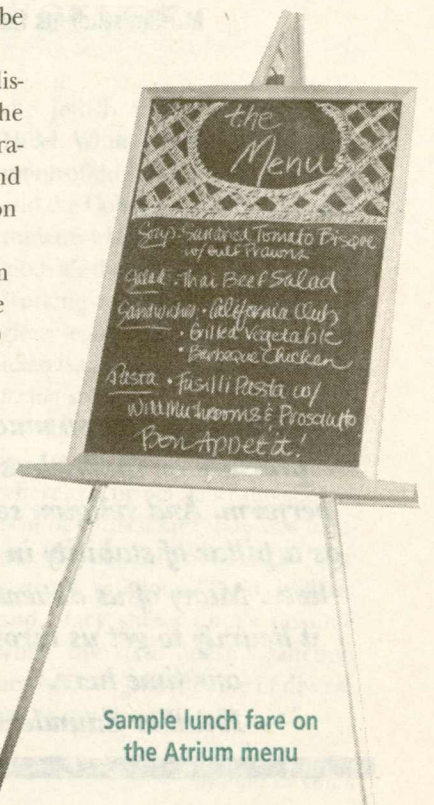 be
dis-
he
ra-
nd
on
n
e
the
Menu
Soup • Sundried Tomato Bisque
w/ Gulf Prawns
Salad • Thai Beef Salad
Sandwiches • California Club
• Grilled Vegetable
• Barbeque Chicken
Pasta • Fusilli Pasta w/
Wild Mushrooms & Prosciutto
Bon Appetit!
Sample lunch fare on
the Atrium menu